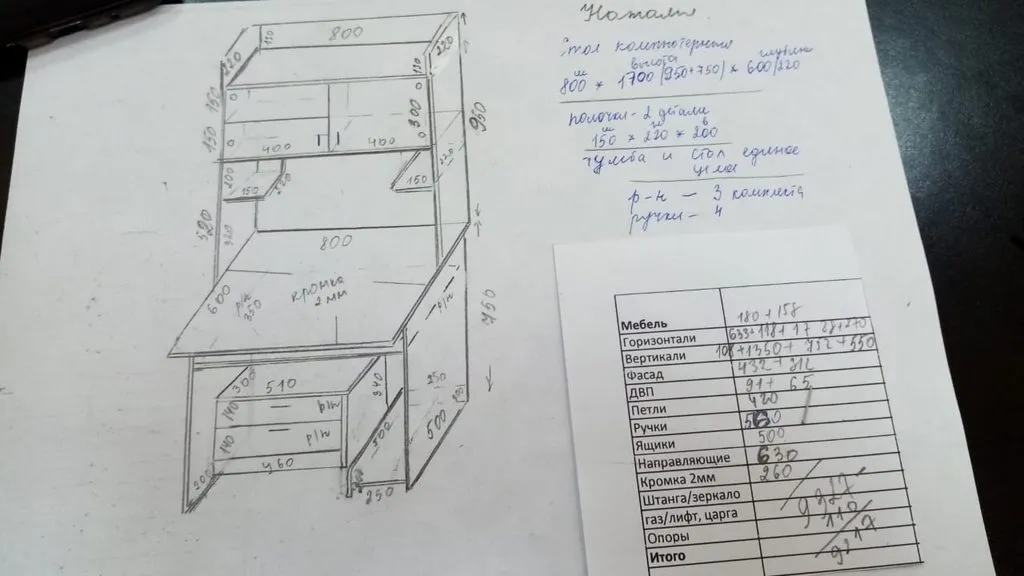 Натали
Стол компьютерный
ш высота глубина
800 × 1700 (950+750) × 600/220
полочки - 2 детали
150 × 220 × 200
тумба и стол единое
целое
р-н - 3 комплекта
ручки - 4
800
220
110
220
110
150
150
300
950
400
400
200
150
150
520
320
800
600
р/н
350
кромка
2мм
р/н
750
300
510
340
140
140
р/н
460
200
250
500
300
250
Мебель 180 + 158
Горизонтали 633+118+17
Вертикали +1350+ 752 +550
Фасад 432 + 312
ДВП 91+ 65
Петли 420
Ручки
Ящики 500
Направляющие 630
Кромка 2мм 260
Штанга/зеркало
газ/лифт, царга 9327
Опоры 110
Итого 9217